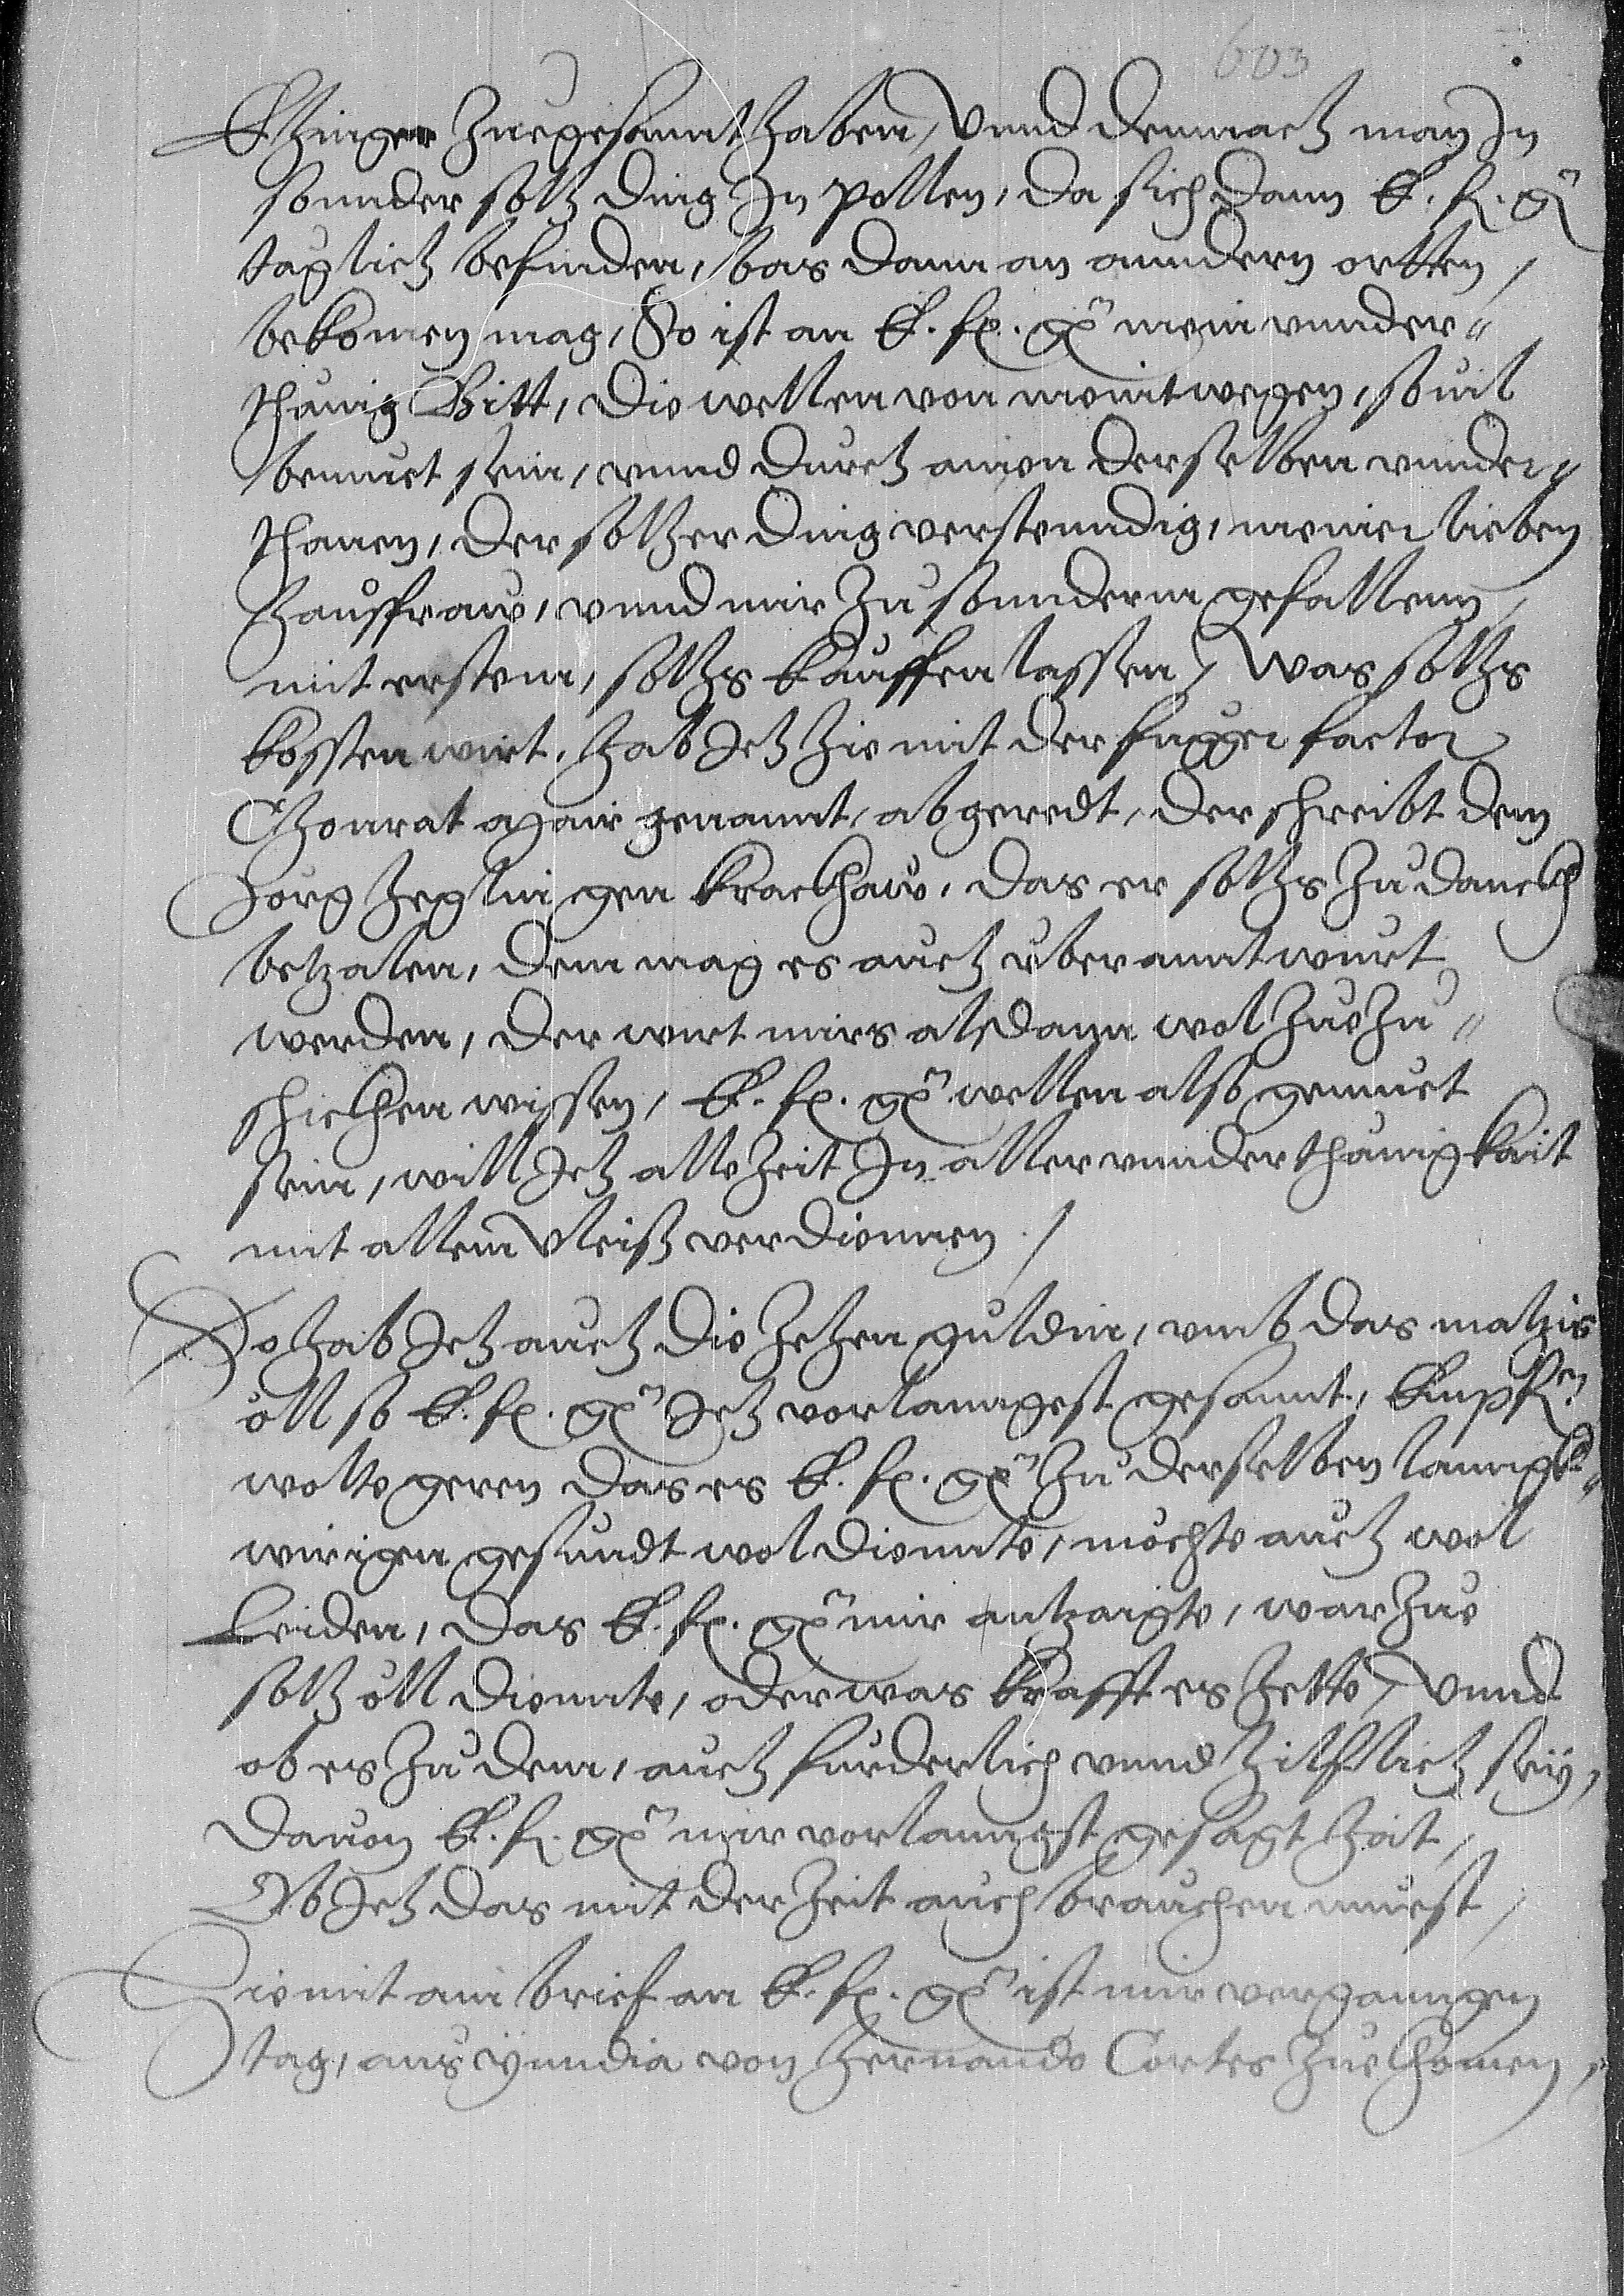 603
Ehinger zuegesannt haben, Vnnd demnach man In
sonnder solh ding In pollen, da sich dann E. f. gn
täglich befinden, bas dann an anndern ortten,
bekomen mag, So ist an E. fl. gn mein vnnder=
thänig Bitt, die wellen von meintwegen, souil
bemuet sein, vnnd durch ainen derselben vnnder=
thanen, der solher ding verstenndig, meiner lieben
Hausfraw, vnnd mir zu sonnderm gefallenn,
mit erstem, solhs kauffen lassen, Was solhs
kosten wirt, hab Ich hie mit der fugger factor
Chonrat Mair genannt, abgeredt, der schreibt dem
Jorg Hegl in gen krackhaw, das er solhs zu danckh
betzalen, dem mag es auch vberanntwurt
werden, der wirt mirs alsdann wol zuezu=
schicken wissen, E. fl. gn wellen also gemuet
sein, will Ich alle zeit In aller vnnderthänigkait
mit allem Vleiss verdiennen /
So hab Ich auch die zehen guldin, vmb das
öll so E. fl. gn Ich vorlanngest gesannt, Empf.
wolte geren das es E. fl. gn zu derselben lanng=
wirigen gesundt wol diennte, möchte auch wol
leiden, das E. fl. gn mir antzaigte, warzue
solh öll diennte, oder was krafft es hette, Vnnd
ob es zu dem, auch furderlich vnnd hilflich sey,
dauon E. fl. gn mir vorlanngst gesagt hat,
Ob Ich das mit der zeit auch brauchen muest,
Hiemit ain brief an E. fl. gn ist mir verganngen
tag, aus Ynndia von Hernando Cortes zuekhomen,